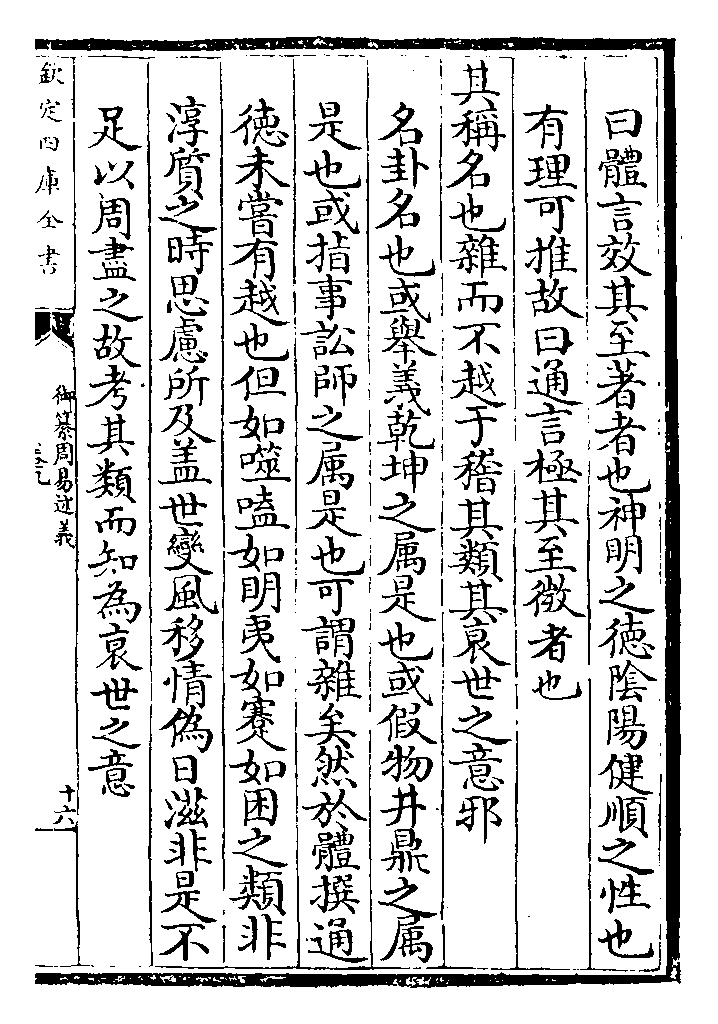 曰體言效其至著者也神明之徳陰陽健順之性也
有理可推故曰通言極其至微者也
其稱名也雜而不越于稽其類其衰世之意邪
名卦名也或舉義乾坤之属是也或假物井鼎之属
是也或指事訟師之属是也可謂雜矣然於體撰通
徳未嘗有越也但如噬嗑如明夷如蹇如困之類非
淳質之時思慮所及盖世變風移情偽日滋非是不
足以周盡之故考其類而知為衰世之意
欽定四庫全書
御纂周易述義
卷九
十六